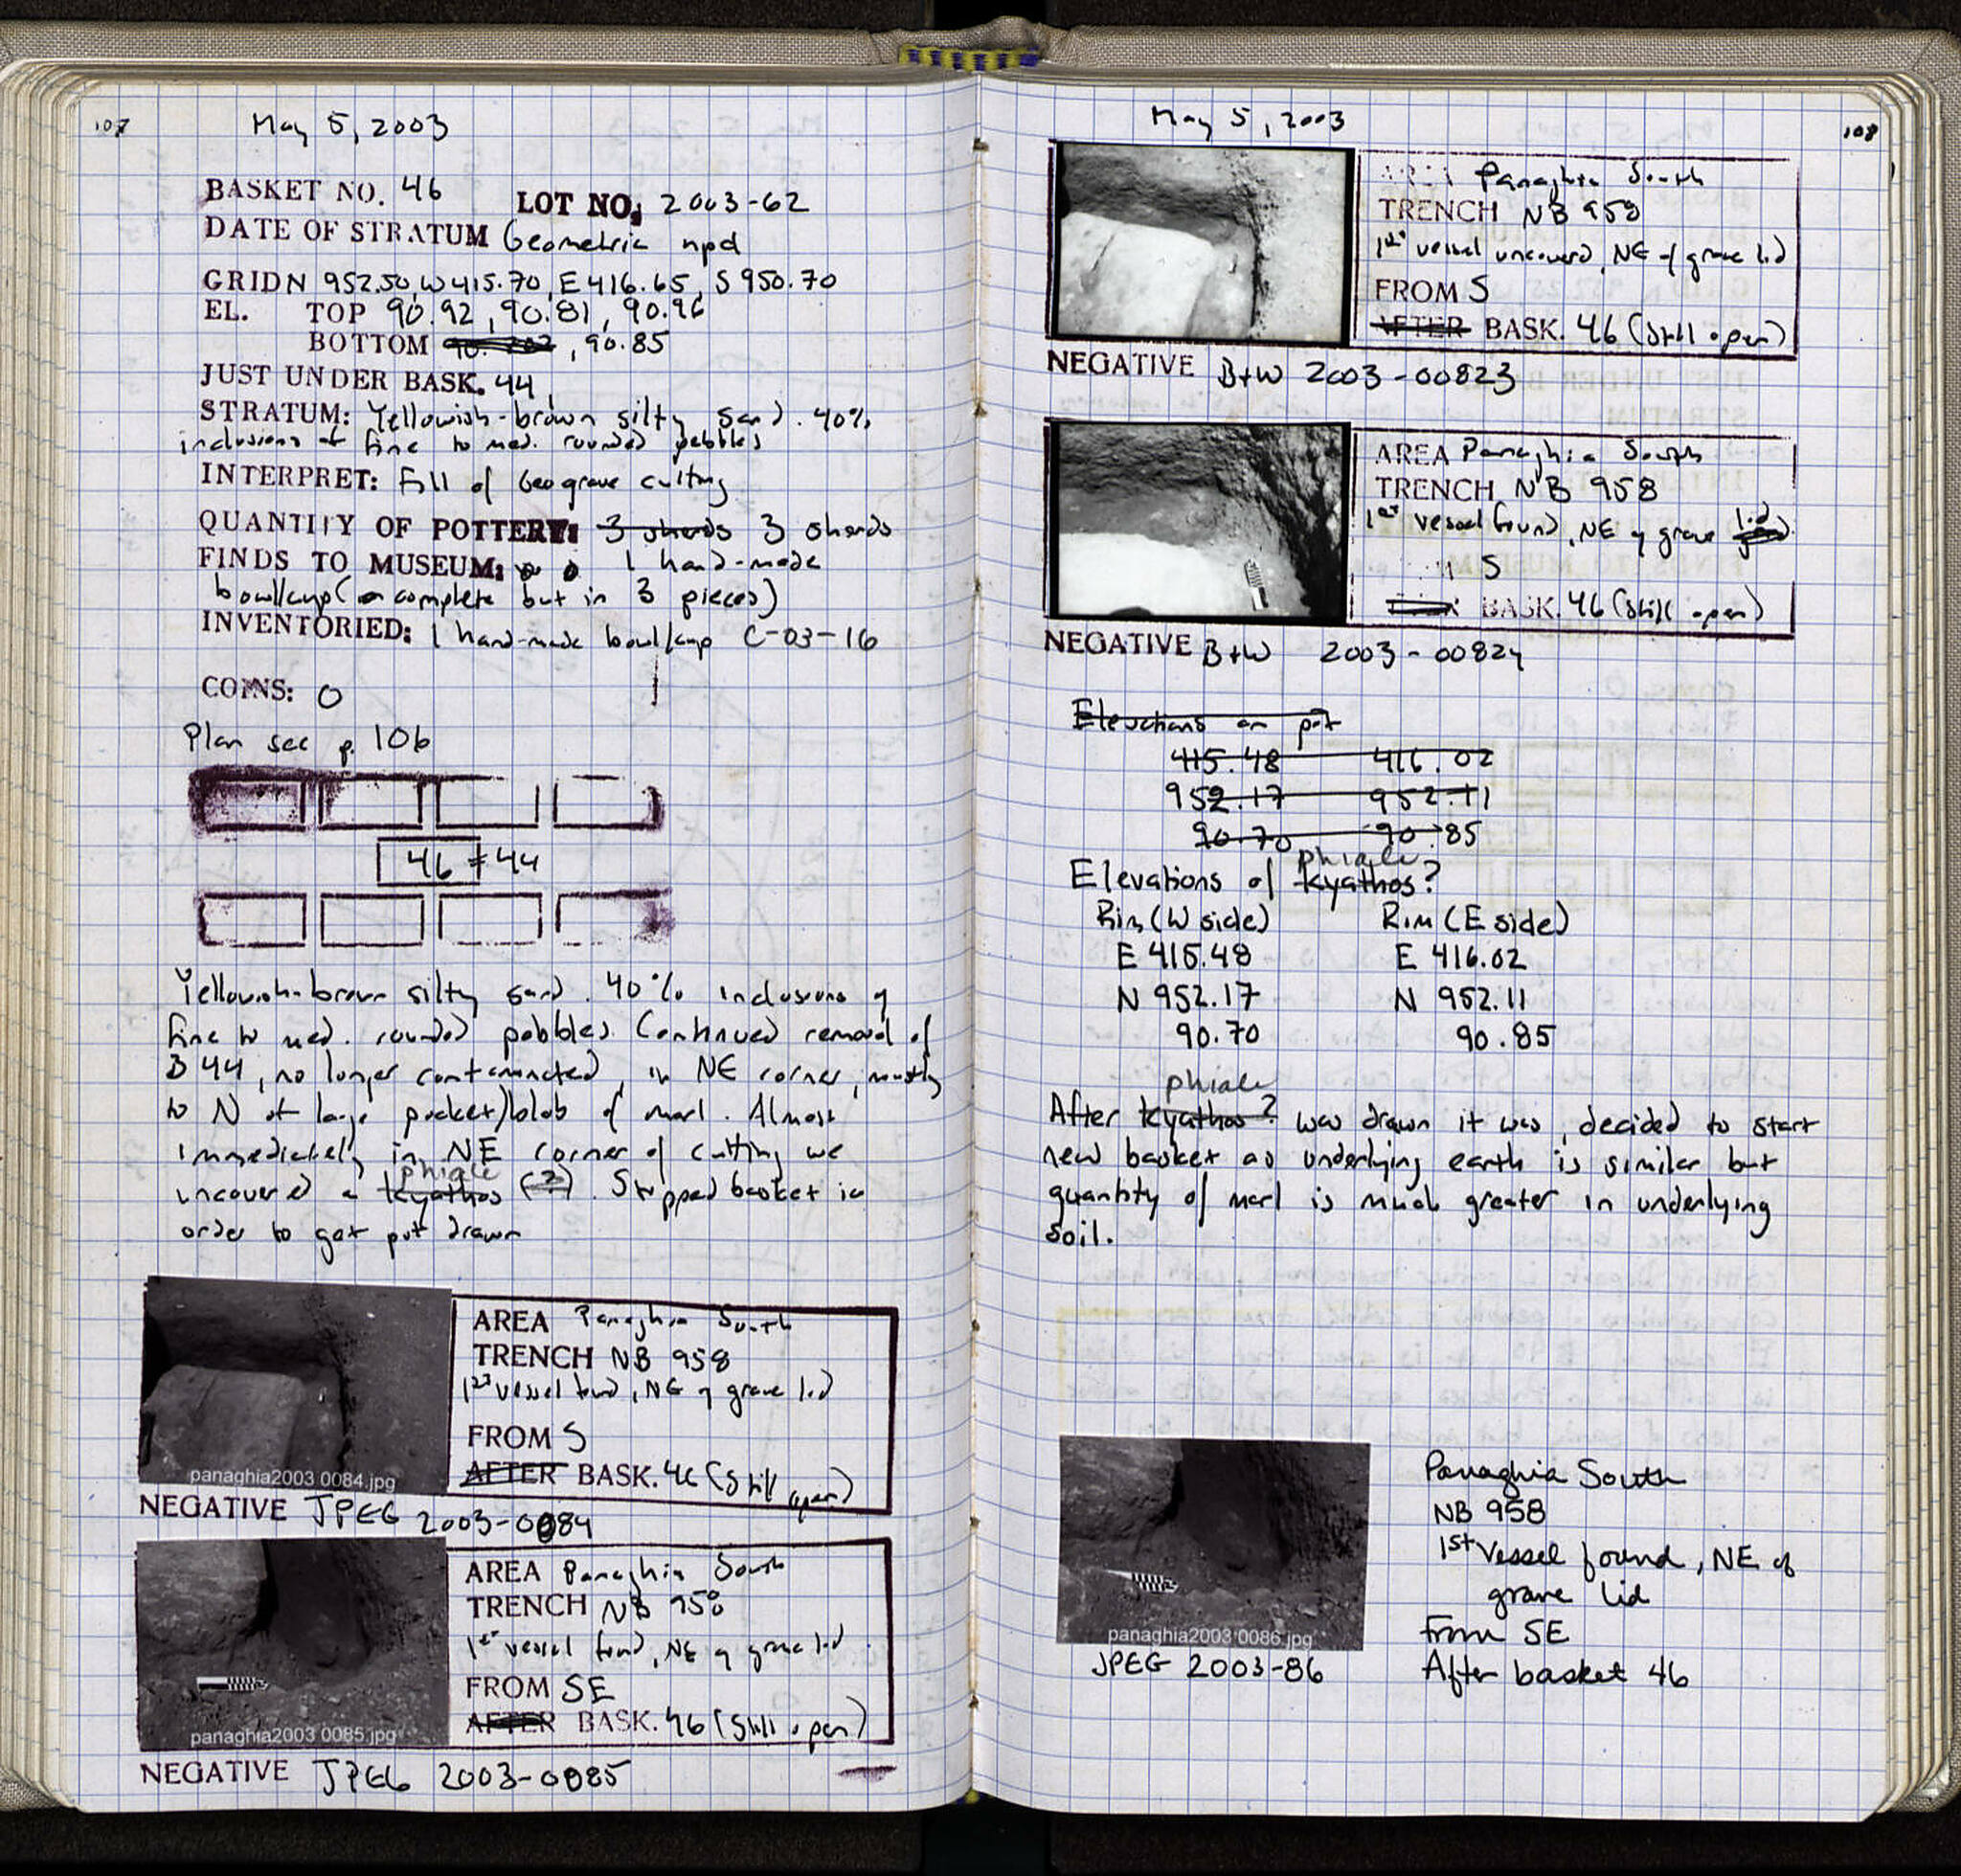 107
May 5, 2003
BASKET NO. 46 LOT NO. 2003-62
DATE OF STRATUM Geometric npd
GRID N 952.50, W 415.70, E 416.65, S 950.70
EL. TOP 90.92, 90.81, 90.96
BOTTOM , 90.85
JUST UNDER BASK. 44
STRATUM: Yellowish-brown silty sand. 40%
inclusions of fine to med. rounded pebbles
INTERPRET: Fill of Geo grave cutting
QUANTITY OF POTTERY: 3 sherds 3 sherds
FINDS TO MUSEUM: 1 hand-made
bowl/cup (complete but in 3 pieces)
INVENTORIED: 1 hand-made bowl/cup C-03-16
COINS: 0
Plan see p. 106
46 = 44
Yellowish-brown silty sand. 40% inclusions of
fine to med. rounded pebbles. Continued removal of
B 44, no longer contaminated, in NE corner, mostly
to N of large pocket/blob of marl. Almost
immediately in NE corner of cutting we
phiale
uncovered a kyathos (?). Stopped basket in
order to get pot drawn
AREA Panaghia South
TRENCH NB 958
1st vessel found, NE of grave lid
FROM S
AFTER BASK. 46 (still open)
panaghia2003 0084.jpg
NEGATIVE JPEG 2003-0084
AREA Panaghia South
TRENCH NB 958
1st vessel found, NE of grave lid
FROM SE
AFTER BASK. 46 (still open)
panaghia2003 0085.jpg
NEGATIVE JPEG 2003-0085
May 5, 2003
108
AREA Panaghia South
TRENCH NB 958
1st vessel uncovered, NE of grave lid
FROM S
AFTER BASK. 46 (still open)
NEGATIVE B+W 2003-00823
AREA Panaghia South
TRENCH NB 958
1st vessel found, NE of grave lid
S
BASK. 46 (still open)
NEGATIVE B+W 2003-00824
Elevations on pot
415.48 416.02
952.17 952.11
90.70 90.85
phiale
Elevations of kyathos?
Rim (W side) Rim (E side)
E 415.48 E 416.02
N 952.17 N 952.11
90.70 90.85
phiale
After kyathos? was drawn it was decided to start
new basket as underlying earth is similar but
quantity of marl is much greater in underlying
soil.
panaghia2003 0086.jpg
JPEG 2003-86
Panaghia South
NB 958
1st vessel found, NE of
grave lid
From SE
After basket 46